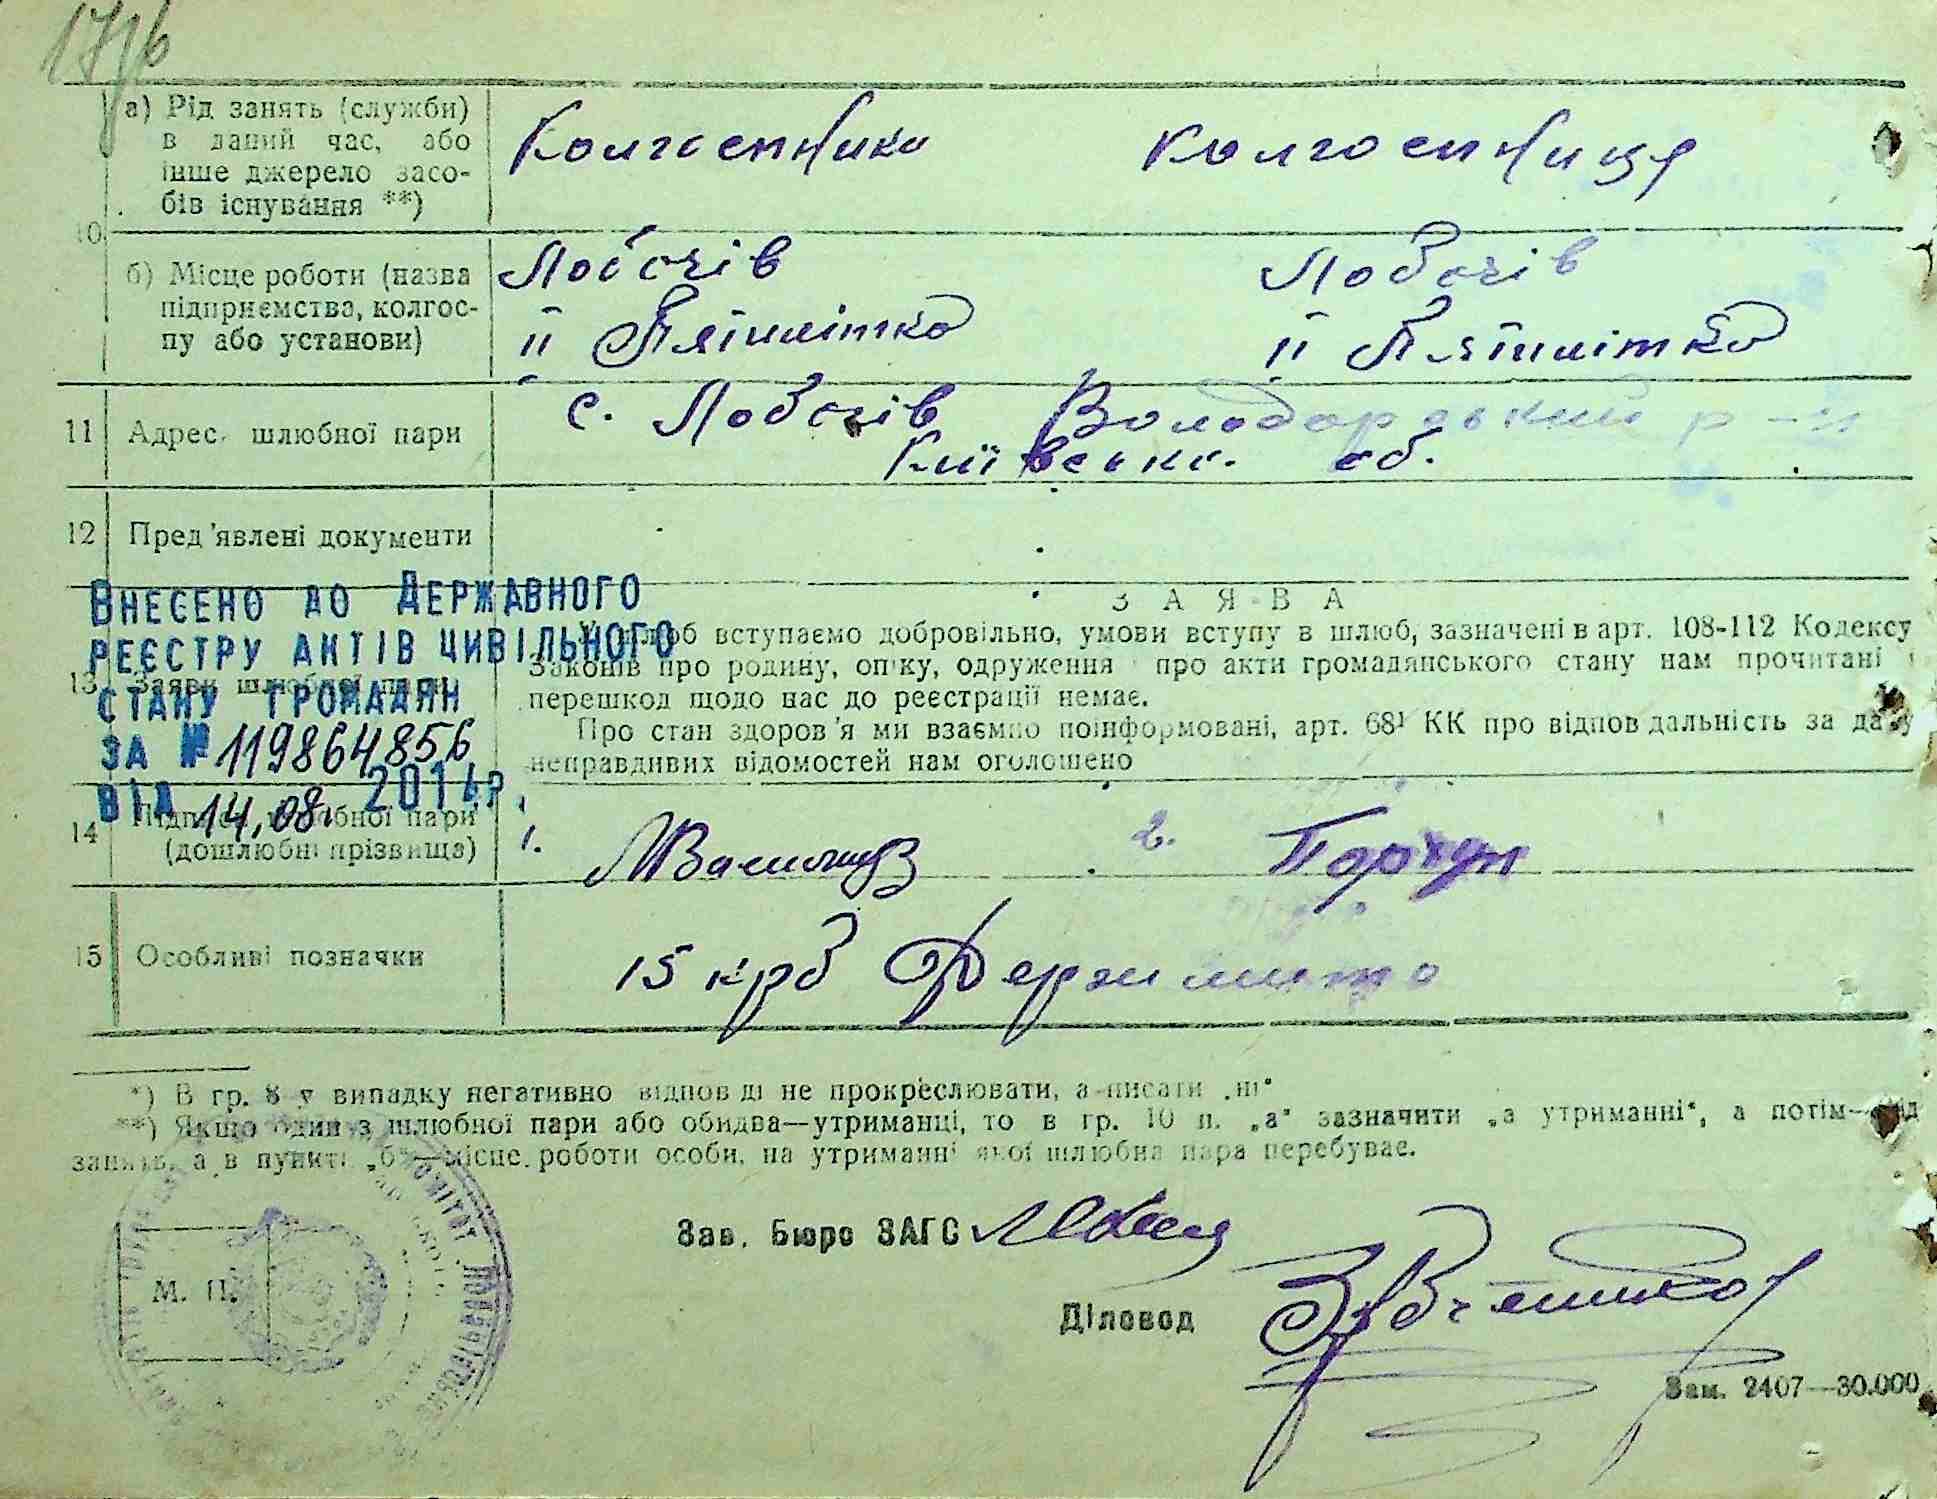 а) Рід занять (служби)
в даний час, або
інше джерело засо-
бів існування **)
Колгоспник Колгоспниця
10
б) Місце роботи (назва
підприємства, колгос-
пу або установи)
Лобачів Лобачів
ІІ П'ятилітка ІІ П'ятилітка
11 Адрес. шлюбної пари
с. Лобачів Володарський р-н
Київськ. об.
12 Пред'явлені документи
ВНЕСЕНО ДО ДЕРЖАВНОГО
РЕЄСТРУ АКТІВ ЦИВІЛЬНОГО
СТАНУ ГРОМАДЯН
ЗА № 119864856
ВІД 14.08. 2014р.
13 Заява шлюбної пари
ЗАЯВА
У шлюб вступаємо добровільно, умови вступу в шлюб, зазначені в арт. 108-112 Кодексу
Законів про родину, опіку, одруження і про акти громадянського стану нам прочитані і
перешкод щодо нас до реєстрації немає.
Про стан здоров'я ми взаємно поінформовані, арт. 68¹ КК про відповідальність за дачу
неправдивих відомостей нам оголошено
14 Підписи шлюбної пари
(дошлюбні прізвища)
1. 2.
15 Особливі позначки
15 крб Держ мито
*) В гр. 8 у випадку негативної відповіді не прокреслювати, а писати „ні“
**) Якщо один з шлюбної пари або обидва—утриманці, то в гр. 10 п. „а“ зазначити „а утриманні“, а потім—рід
занять, а в пункті „б“—місце роботи особи, на утриманні якої шлюбна пара перебуває.
Зав. Бюро ЗАГС
М. П.
Діловод
Зам. 2407—30.000